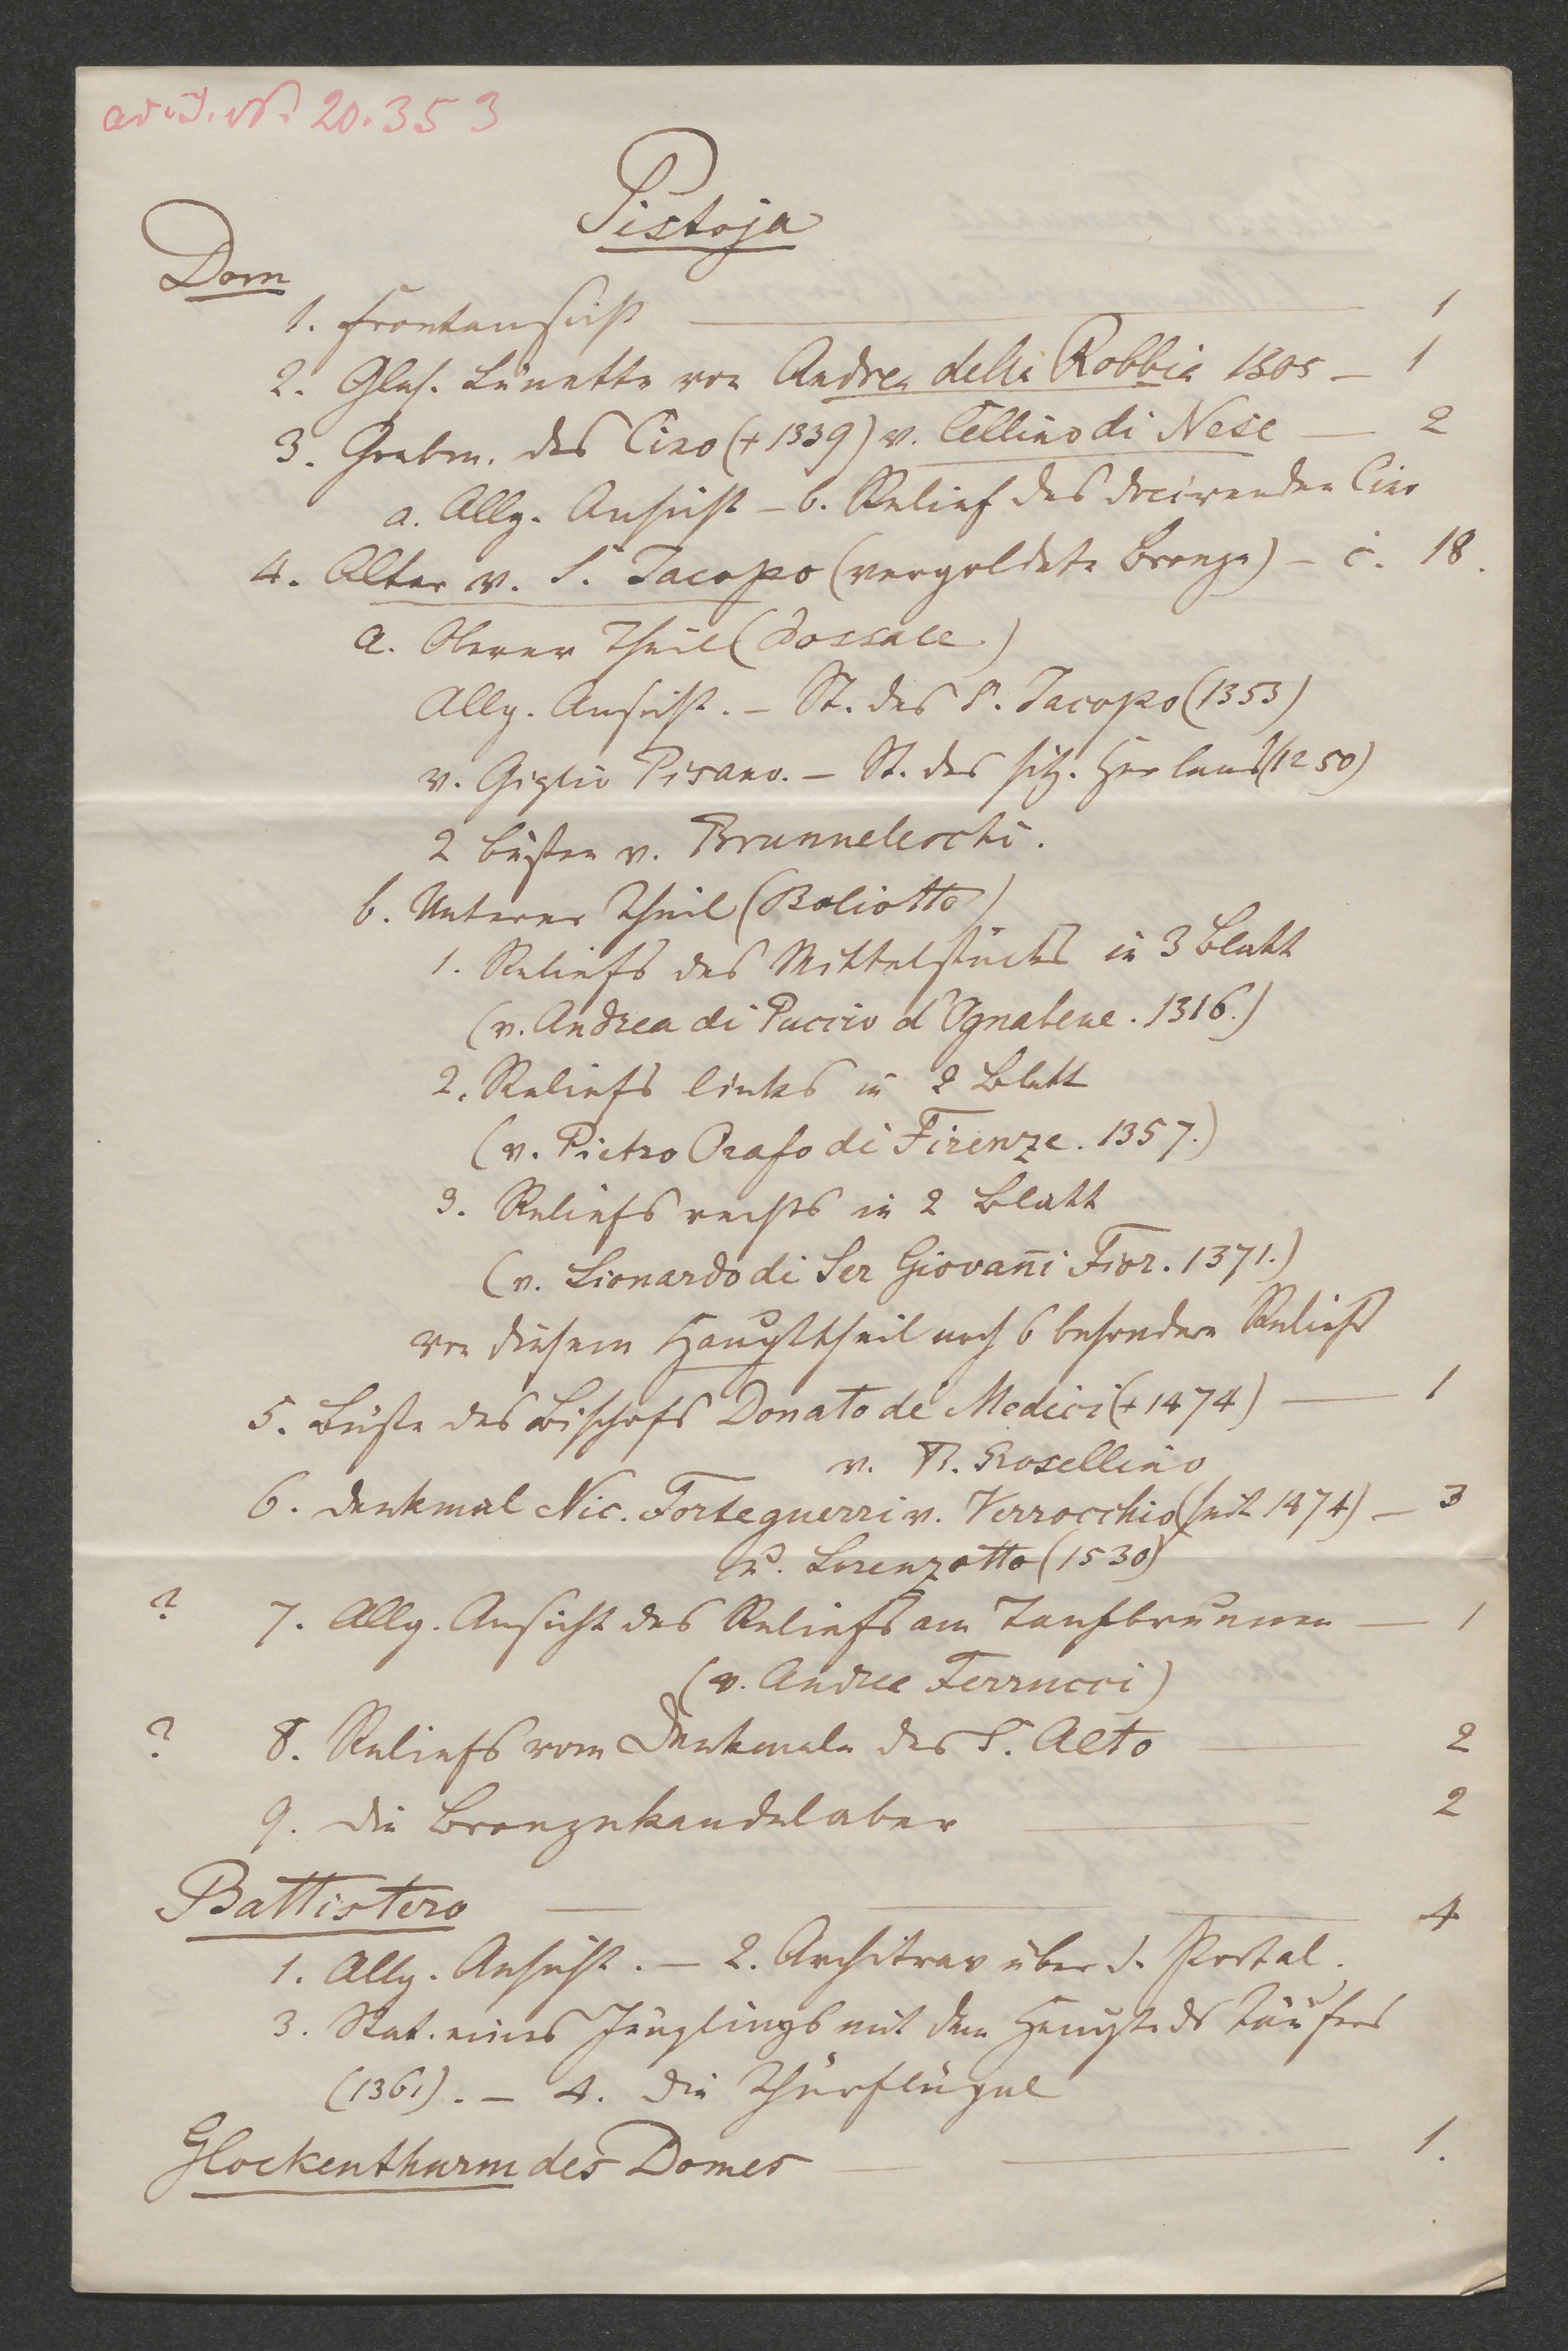 ad J. N. 20.353
Pistoja
Dom
1. Frontansicht — 1
2. Glas. Lünette von Andrea della Robbia 1505 — 1
3. Grabm. des Cino (+ 1339) v. Cellino di Nese — 2
a. Allg. Ansicht – b. Relief des docirenden Cino
4. Altar v. S. Jacopo (vergoldete Bronze) – c. 18.
a. Oberer Theil (Dossale)
Allg. Ansicht. – St. des S. Jacopo (1353)
v. Giglio Pisano. – St. des sitz. Heilands (1250)
2 Büsten v. Brunneleschi.
b. Unterer Theil (Baliotto)
1. Reliefs des Mittelstücks in 3 Blatt
(v. Andrea di Puccio d'Ognabene. 1316.)
2. Reliefs links in 2 Blatt
(v. Pietro Orafo di Firenze. 1357.)
3. Reliefs rechts in 2 Blatt
(v. Lionardo di Ser Giovan̄i Fior. 1371.)
von diesem Haupttheil noch 6 besondere Reliefs
5. Büste des Bischofs Donato de Medici (+ 1474) — 1
v. B. Rosellino
6. Denkmal Nic. Forteguerri v. Verrocchio (seit 1474) — 3
u. Lorenzotto (1530)
? 7. Allg. Ansicht des Reliefs am Taufbrunnen — 1
(v. Andrea Ferrucci)
? 8. Reliefs vom Denkmale des S. Alto — 2
9. Die Bronzekandelaber — 2
Battistero — 4
1. Allg. Ansicht. – 2. Architrav über d. Portal.
3. Stat. eines Jünglings mit dem Haupte ds Täufers
(1361). – 4. Die Thürflügel
Glockenthurm des Domes — 1.